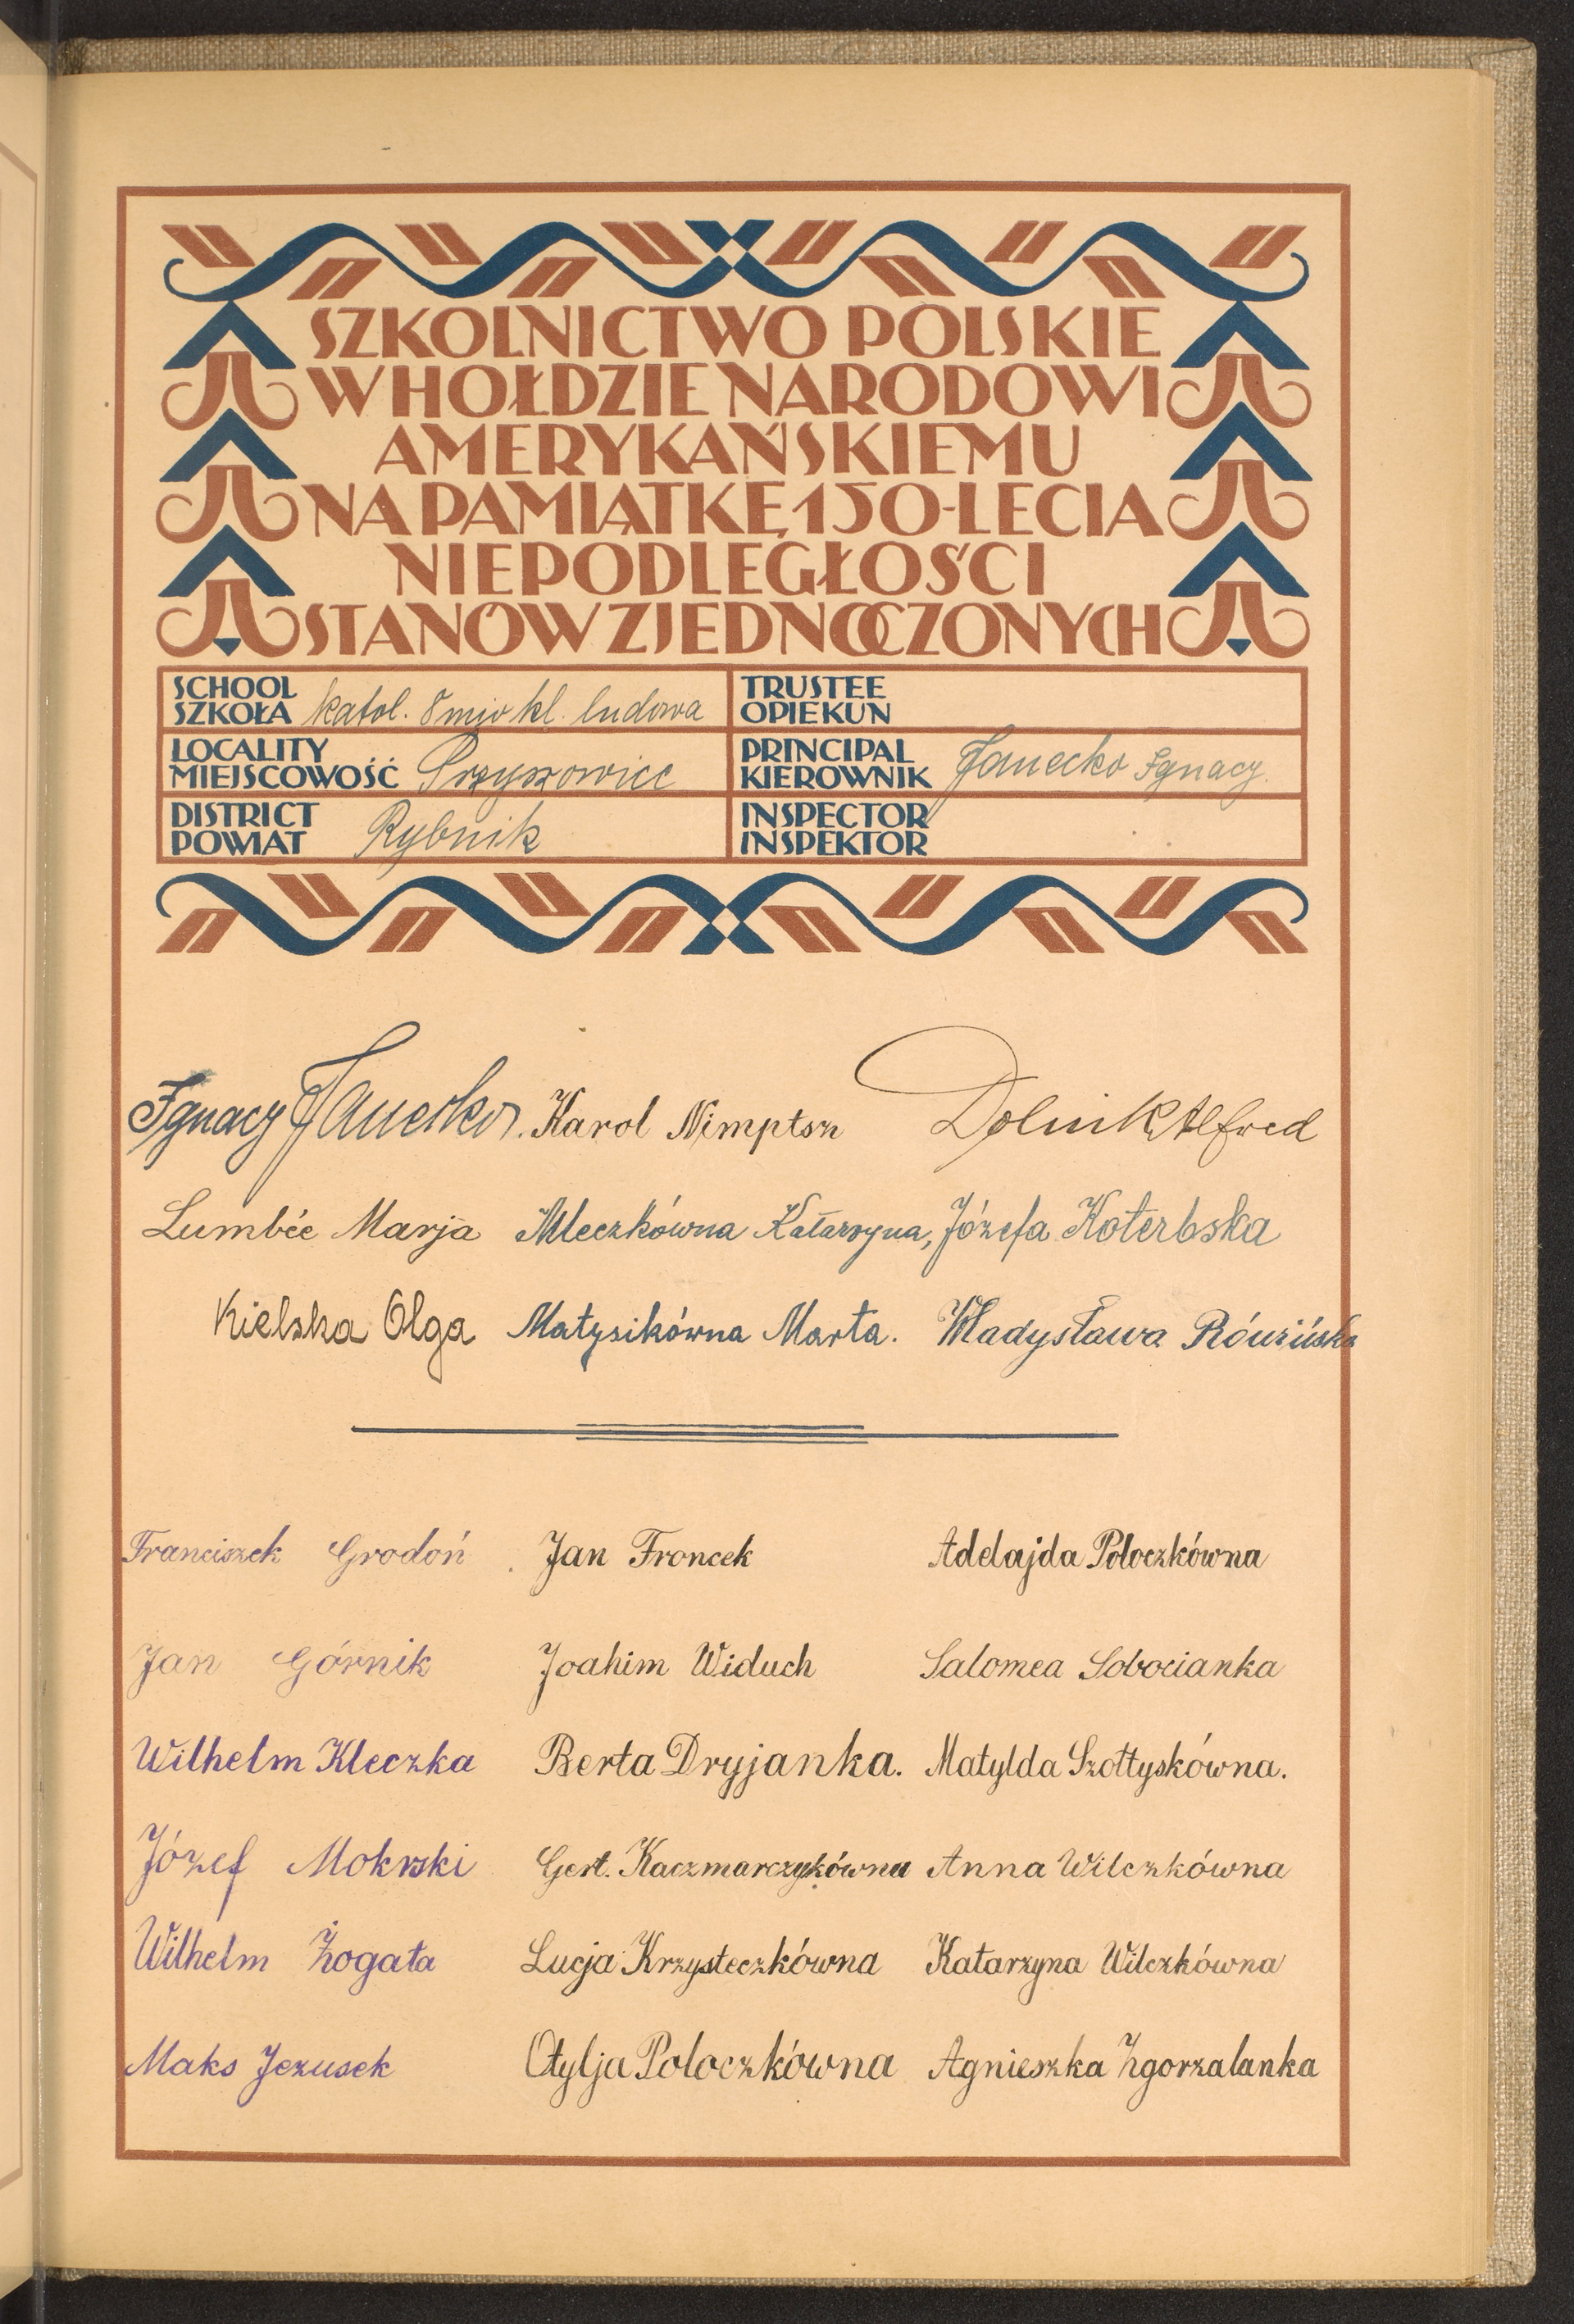 SZKOLNICTWO POLSKIE
W HOŁDZIE NARODOWI
AMERYKAŃSKIEMU
NA PAMIĄTKĘ 150-LECIA
NIEPODLEGŁOŚCI
STANÓW ZJEDNOCZONYCH
SCHOOL
SZKOŁA katol. 8mio kl. ludowa
TRUSTEE
OPIEKUN
LOCALITY
MIEJSCOWOŚĆ Przyszowice
PRINCIPAL
KIEROWNIK Janecko Ignacy.
DISTRICT
POWIAT Rybnik
INSPECTOR
INSPEKTOR
Ignacy Janecko. Karol Nimptsz Dolnik Alfred
Lumbée Marja Mleczkówna Katarzyna, Józefa Koterbska
Kielska Olga Matysikówna Marta. Władysława
Franciszek Grodoń Jan Froncek Adelajda Poloczkówna
Jan Górnik Joahim Widuch Salomea Sobocianka
Wilhelm Kleczka Berta Dryjanka. Matylda Szołtyskówna.
Józef Mokrski Gert. Kaczmarczykówna Anna Wilczkówna
Wilhelm Żogała Lucja Krzysteczkówna Katarzyna Wilczkówna
Maks Jezusek Otylja Poloczkówna Agnieszka Zgorzalanka